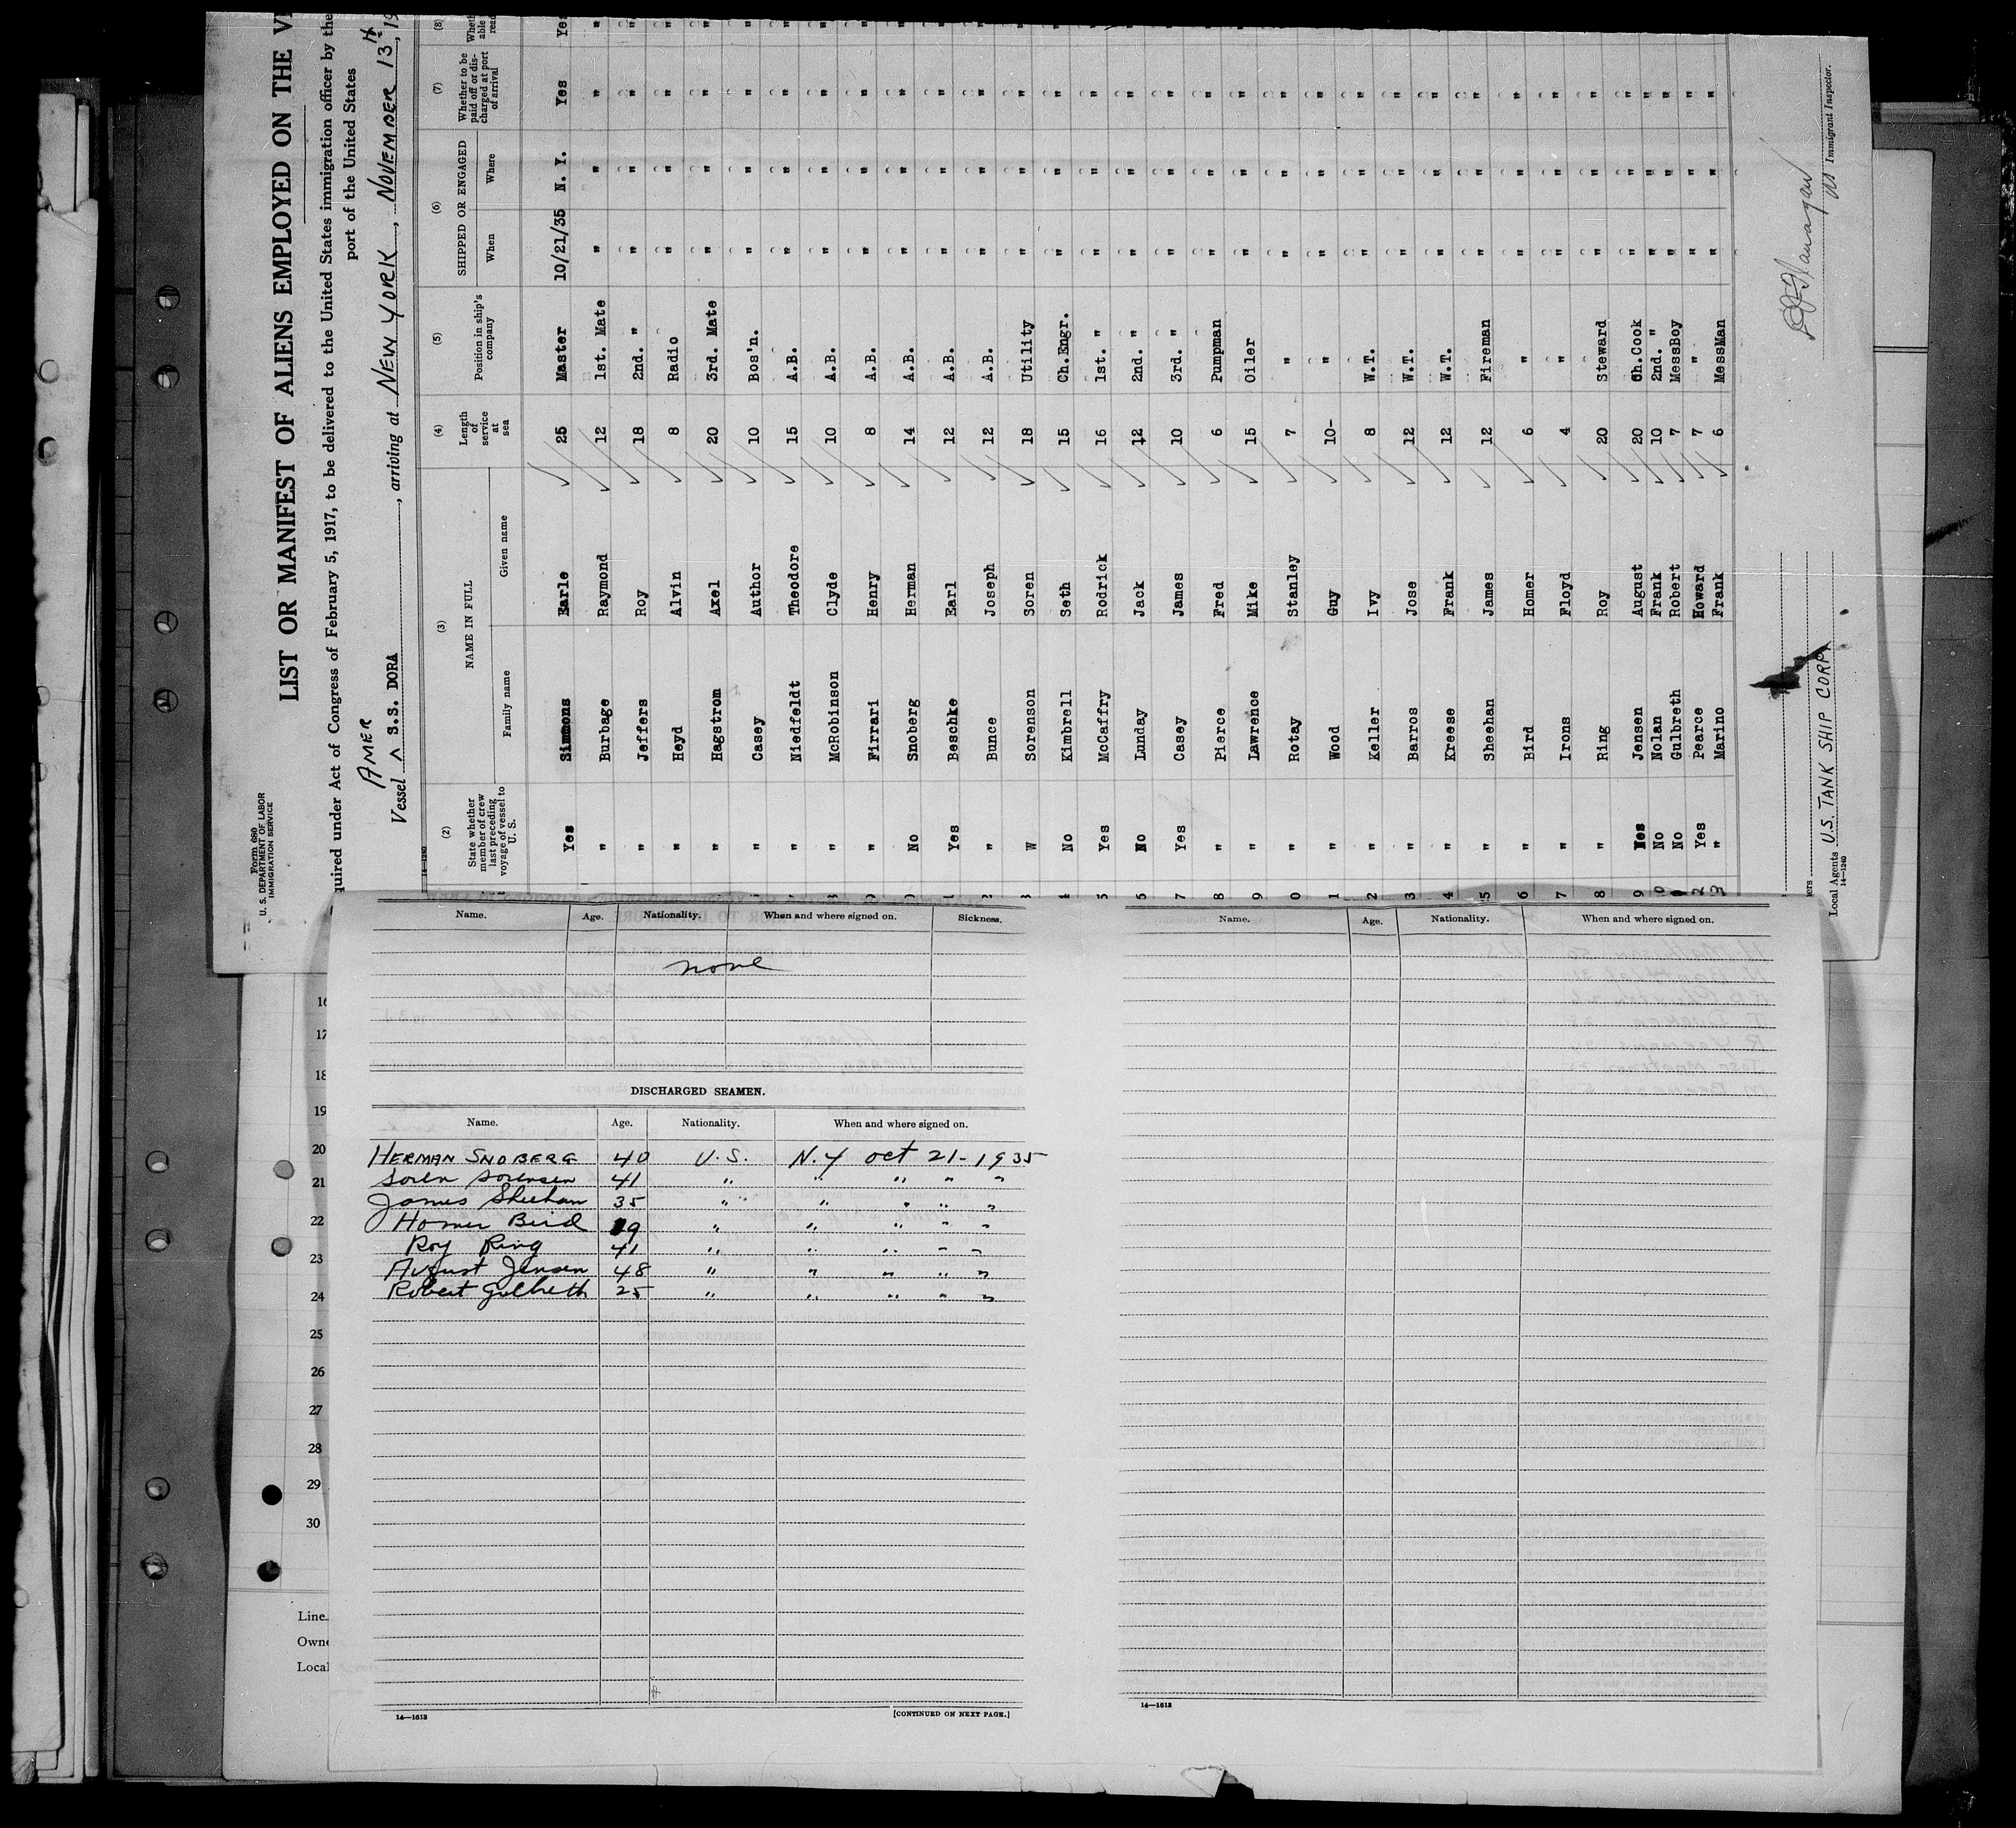 Form 680
U. S. DEPARTMENT OF LABOR
IMMIGRATION SERVICE
LIST OR MANIFEST OF ALIENS EMPLOYED ON THE
quired under Act of Congress of February 5, 1917, to be delivered to the United States immigration officer by the
port of the United States
AMER
Vessel ^ S.S. DORA, arriving at NEW YORK, NOVEMBER 13th, 19
(2) (3) (4) (5) (6) (7) (8)
State whether member of crew last preceding voyage of vessel to U. S. NAME IN FULL Length of service at sea Position in ship's company SHIPPED OR ENGAGED Whether to be paid off or discharged at port of arrival
Family name Given name When Where
Yes Simmons Earle 25 Master 10/21/35 N. Y. Yes Yes
" Burbage Raymond 12 1st. Mate " " " "
" Jeffers Roy 18 2nd. " " " " "
" Heyd Alvin 8 Radio " " " "
" Hagstrom Axel 20 3rd. Mate " " " "
" Casey Author 10 Bos'n. " " " "
" Niedfeldt Theodore 15 A.B. " " " "
" McRobinson Clyde 10 A.B. " " " "
" Firrari Henry 8 A.B. " " " "
No Snoberg Herman 14 A.B. " " " "
Yes Beschke Earl 12 A.B. " " " "
" Bunce Joseph 12 A.B. " " " "
W Sorenson Soren 18 Utility " " " "
No Kimbrell Seth 15 Ch.Engr. " " " "
Yes McCaffry Rodrick 16 1st. " " " " "
No Lunday Jack 12 2nd. " " " " "
Yes Casey James 10 3rd. " " " " "
" Pierce Fred 6 Pumpman " " " "
" Lawrence Mike 15 Oiler " " " "
" Rotay Stanley 7 " " " " "
" Wood Guy 10- " " " " "
" Keller Ivy 8 W.T. " " " "
" Barros Jose 12 W.T. " " " "
" Kreese Frank 12 W.T. " " " "
" Sheehan James 12 Fireman " " " "
" Bird Homer 6 " " " " "
" Irons Floyd 4 " " " " "
" Ring Roy 20 Steward " " " "
Yes Jensen August 20 Ch.Cook " " " "
No Nolan Frank 10 2nd. " " " " "
No Gulbreth Robert 7 MessBoy " " " "
Yes Pearce Howard 7 " " " " "
" Marino Frank 6 MessMan " " " "
Local Agents U.S. TANK SHIP CORP.
14-1240
Immigrant Inspector.
Name. Age. Nationality. When and where signed on. Sickness.
none
DISCHARGED SEAMEN.
Name. Age. Nationality. When and where signed on.
HERMAN SNOBERG 40 U.S. N.Y oct 21-1935
Soren Sorensen 41 " " " " "
James Sheehan 35 " " " " "
Homer Bird 19 " " " " "
Roy Ring 41 " " " " "
August Jensen 48 " " " " "
Robert Gulbreth 25 " " " " "
14—1613
[CONTINUED ON NEXT PAGE.]
Name. Age. Nationality. When and where signed on.
14—1613
16
17
18
19
20
21
22
23
24
25
26
27
28
29
30
Line
Owne
Local